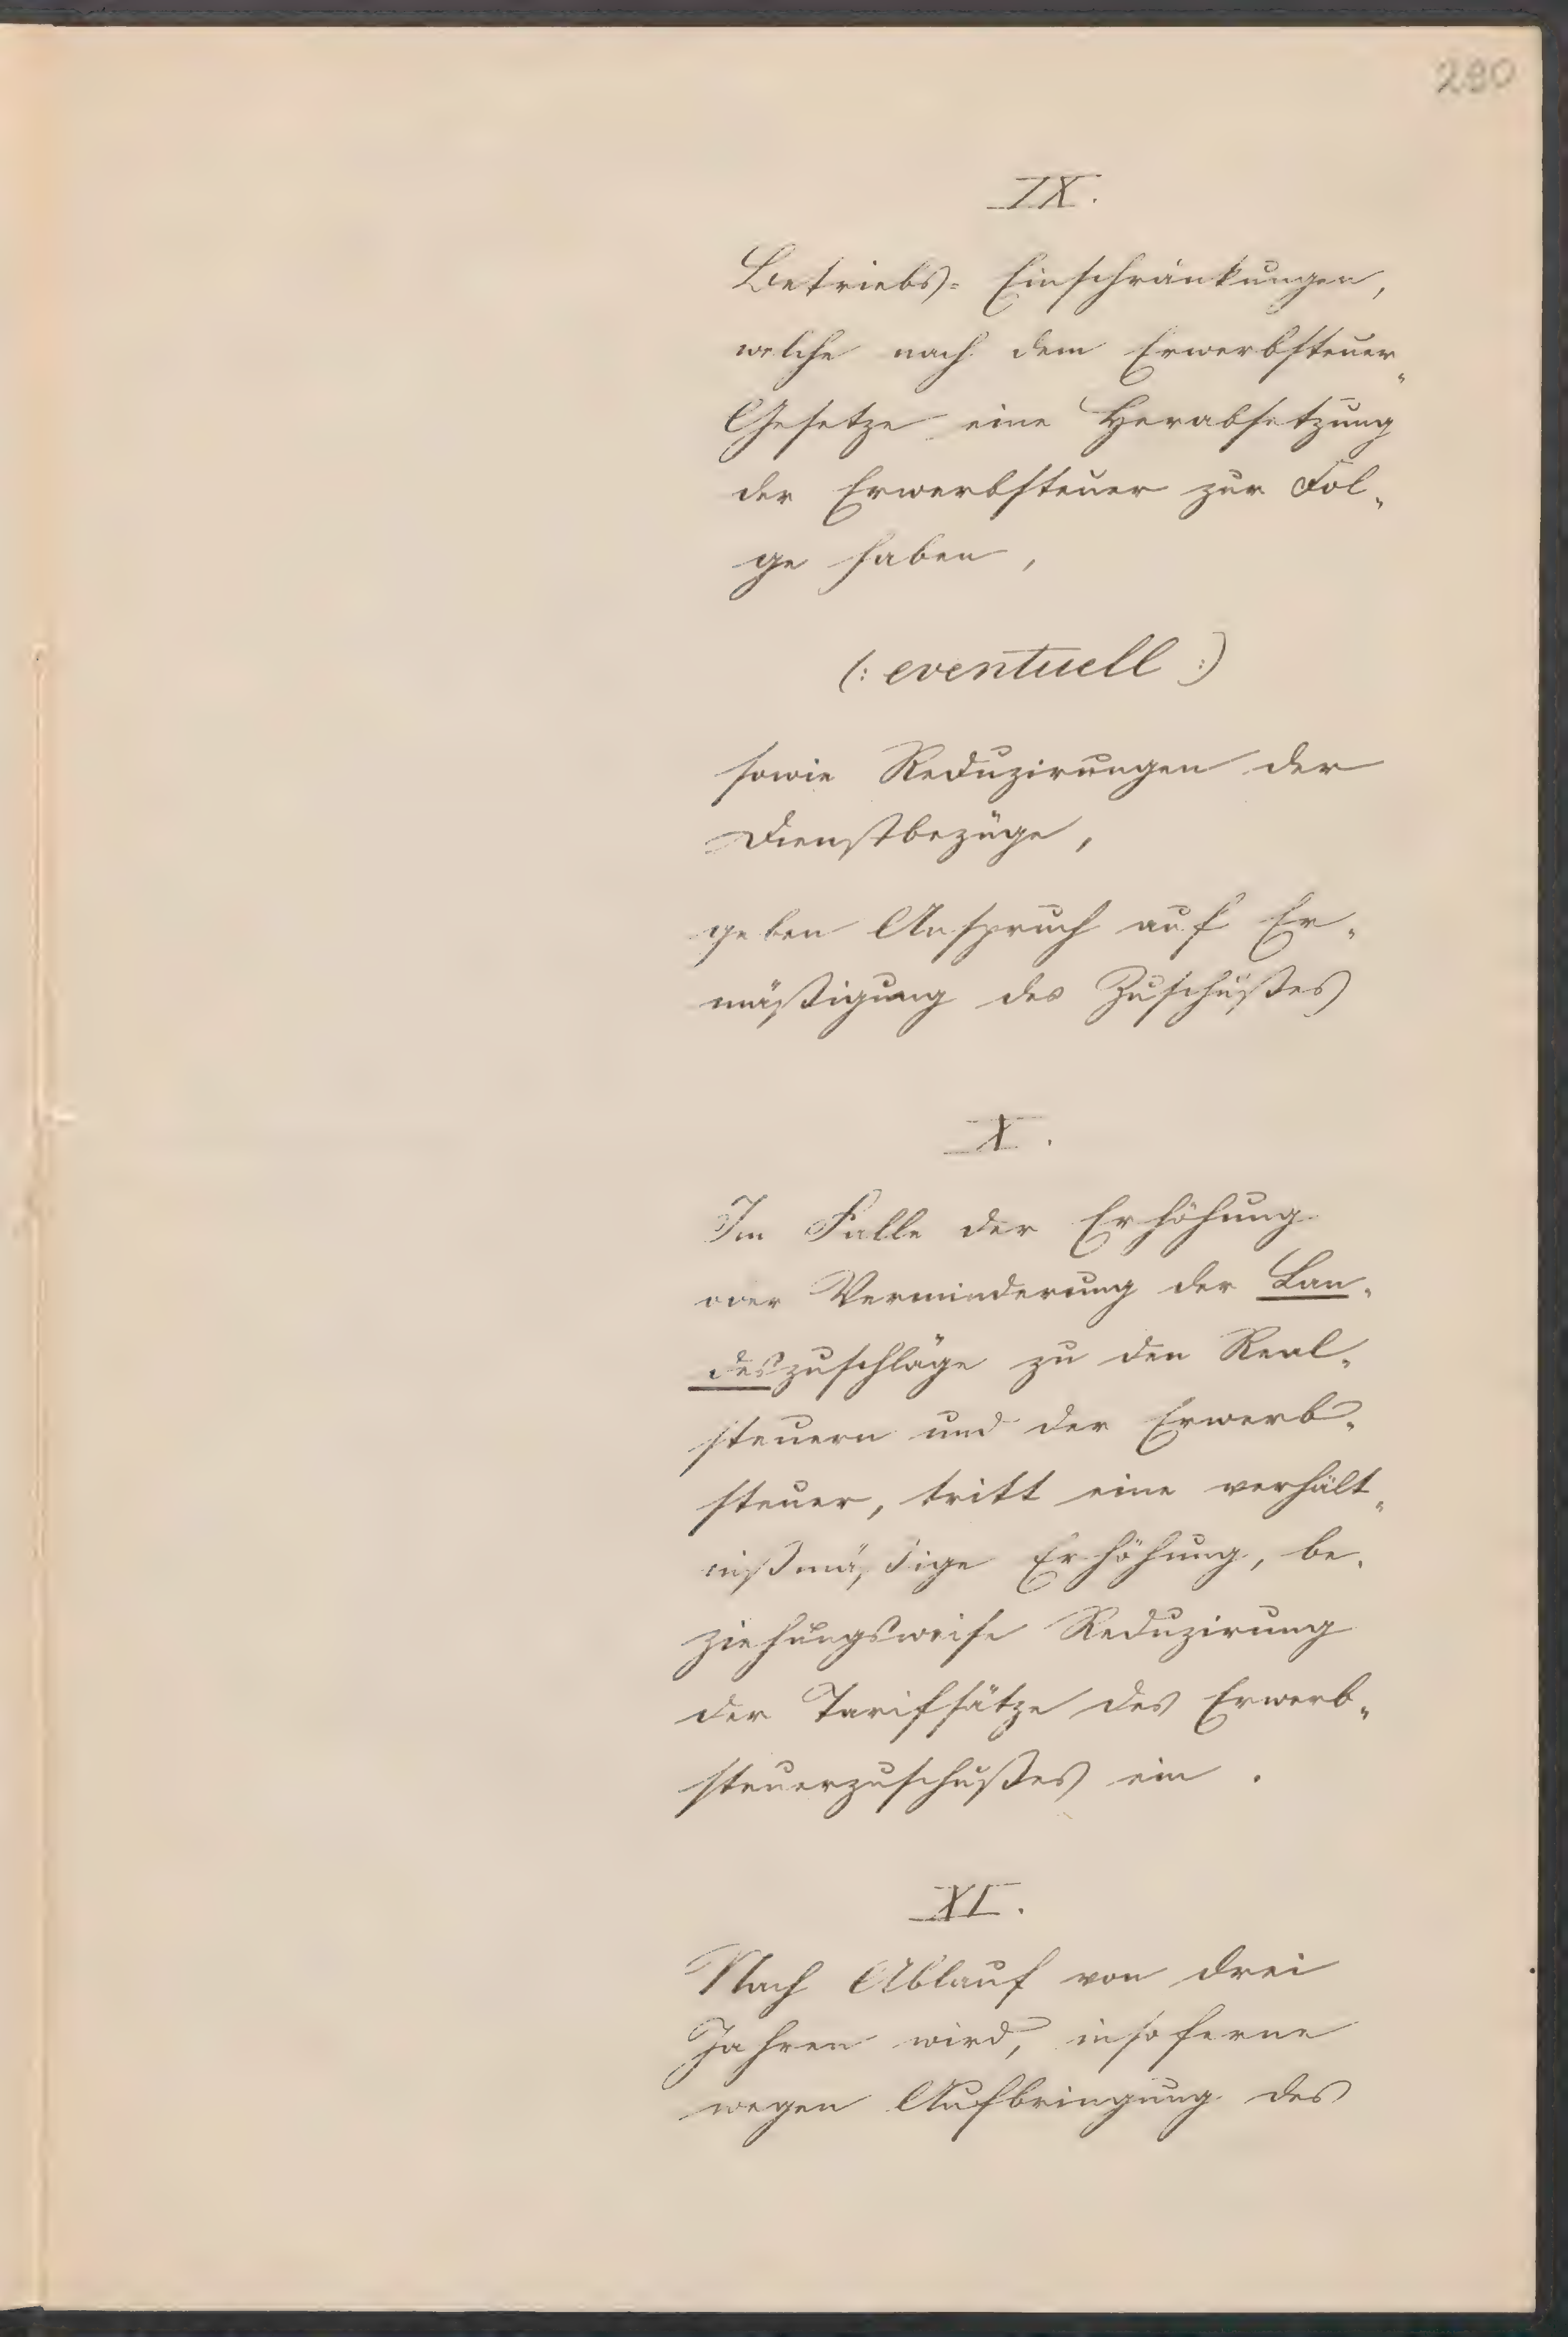 280
IX.
Betriebs= Einschränkungen,
welche nach dem Erwerbsteuer„
Gesetze eine Herabsetzung
der Erwerbsteuer zur Fol„
ge haben,
(: eventuell :)
sowie Reduzirungen der
Dienstbezüge,
geben Anspruch auf Er„
mäßigung des Zuschußes
X.
Im Falle der Erhöhung
oder Verminderung der Lan„
deszuschläge zu den Real„
steuern und der Erwerb„
steuer, tritt eine verhält„
nißmäßige Erhöhung, be„
ziehungsweise Reduzirung
der Tarifsätze des Erwerb„
steuerzuschußes ein.
XI.
Nach Ablauf von drei
Jahren wird, insoferne
wegen Aufbringung des